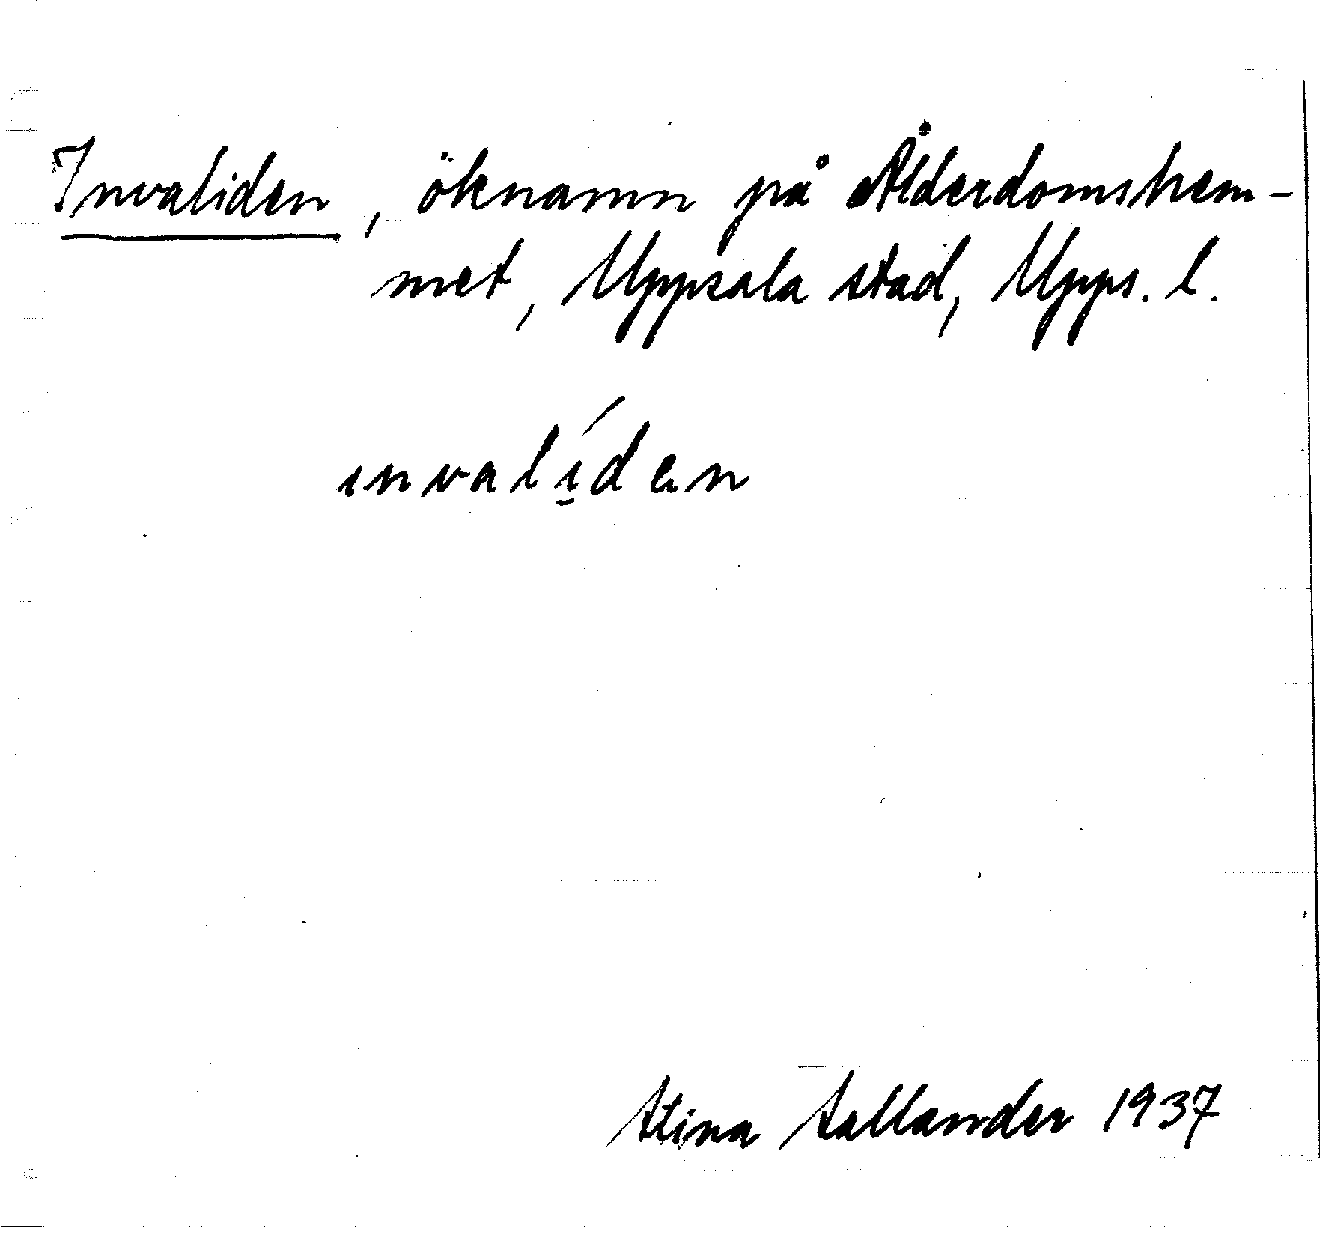 Invaliden, öknamn på Ålderdomshem-
met, Uppsala stad, Upps. l.
ınvalı̱́den
Stina Sallander 1937